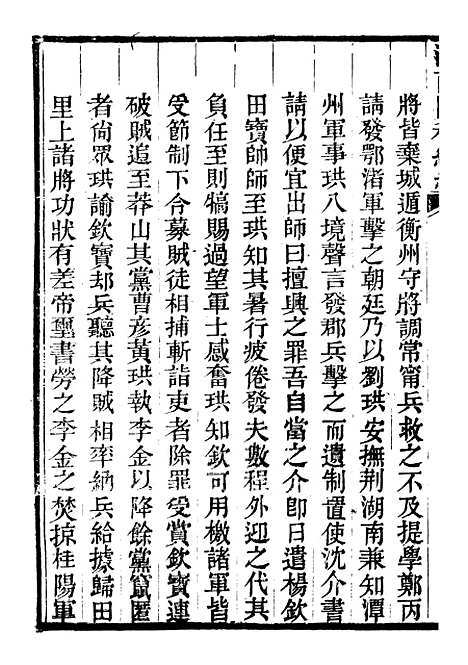 將皆棄城遁衡州守將調常甯兵救之不及提學鄭丙
請發鄂渚軍擊之朝廷乃以劉珙安撫荆湖南兼知潭
州軍事珙入境聲言發郡兵擊之而遺制置使沈介書
請以便宜出師曰擅興之罪吾自當之介卽日遣楊欽
田寶帥師至珙知其暑行疲倦發夫數程外迎之代其
負任至則犒賜過望軍士感奮珙知欽可用檄諸軍皆
受節制下令募賊徒相捕斬詣吏者除罪受賞欽寶連
破賊追至莽山其黨曹彥黃珙執李金以降餘黨竄匿
者尙眾珙諭欽寶却兵聽其降賊相率納兵給據歸田
里上諸將功狀有差帝璽書勞之李金之焚掠桂陽軍